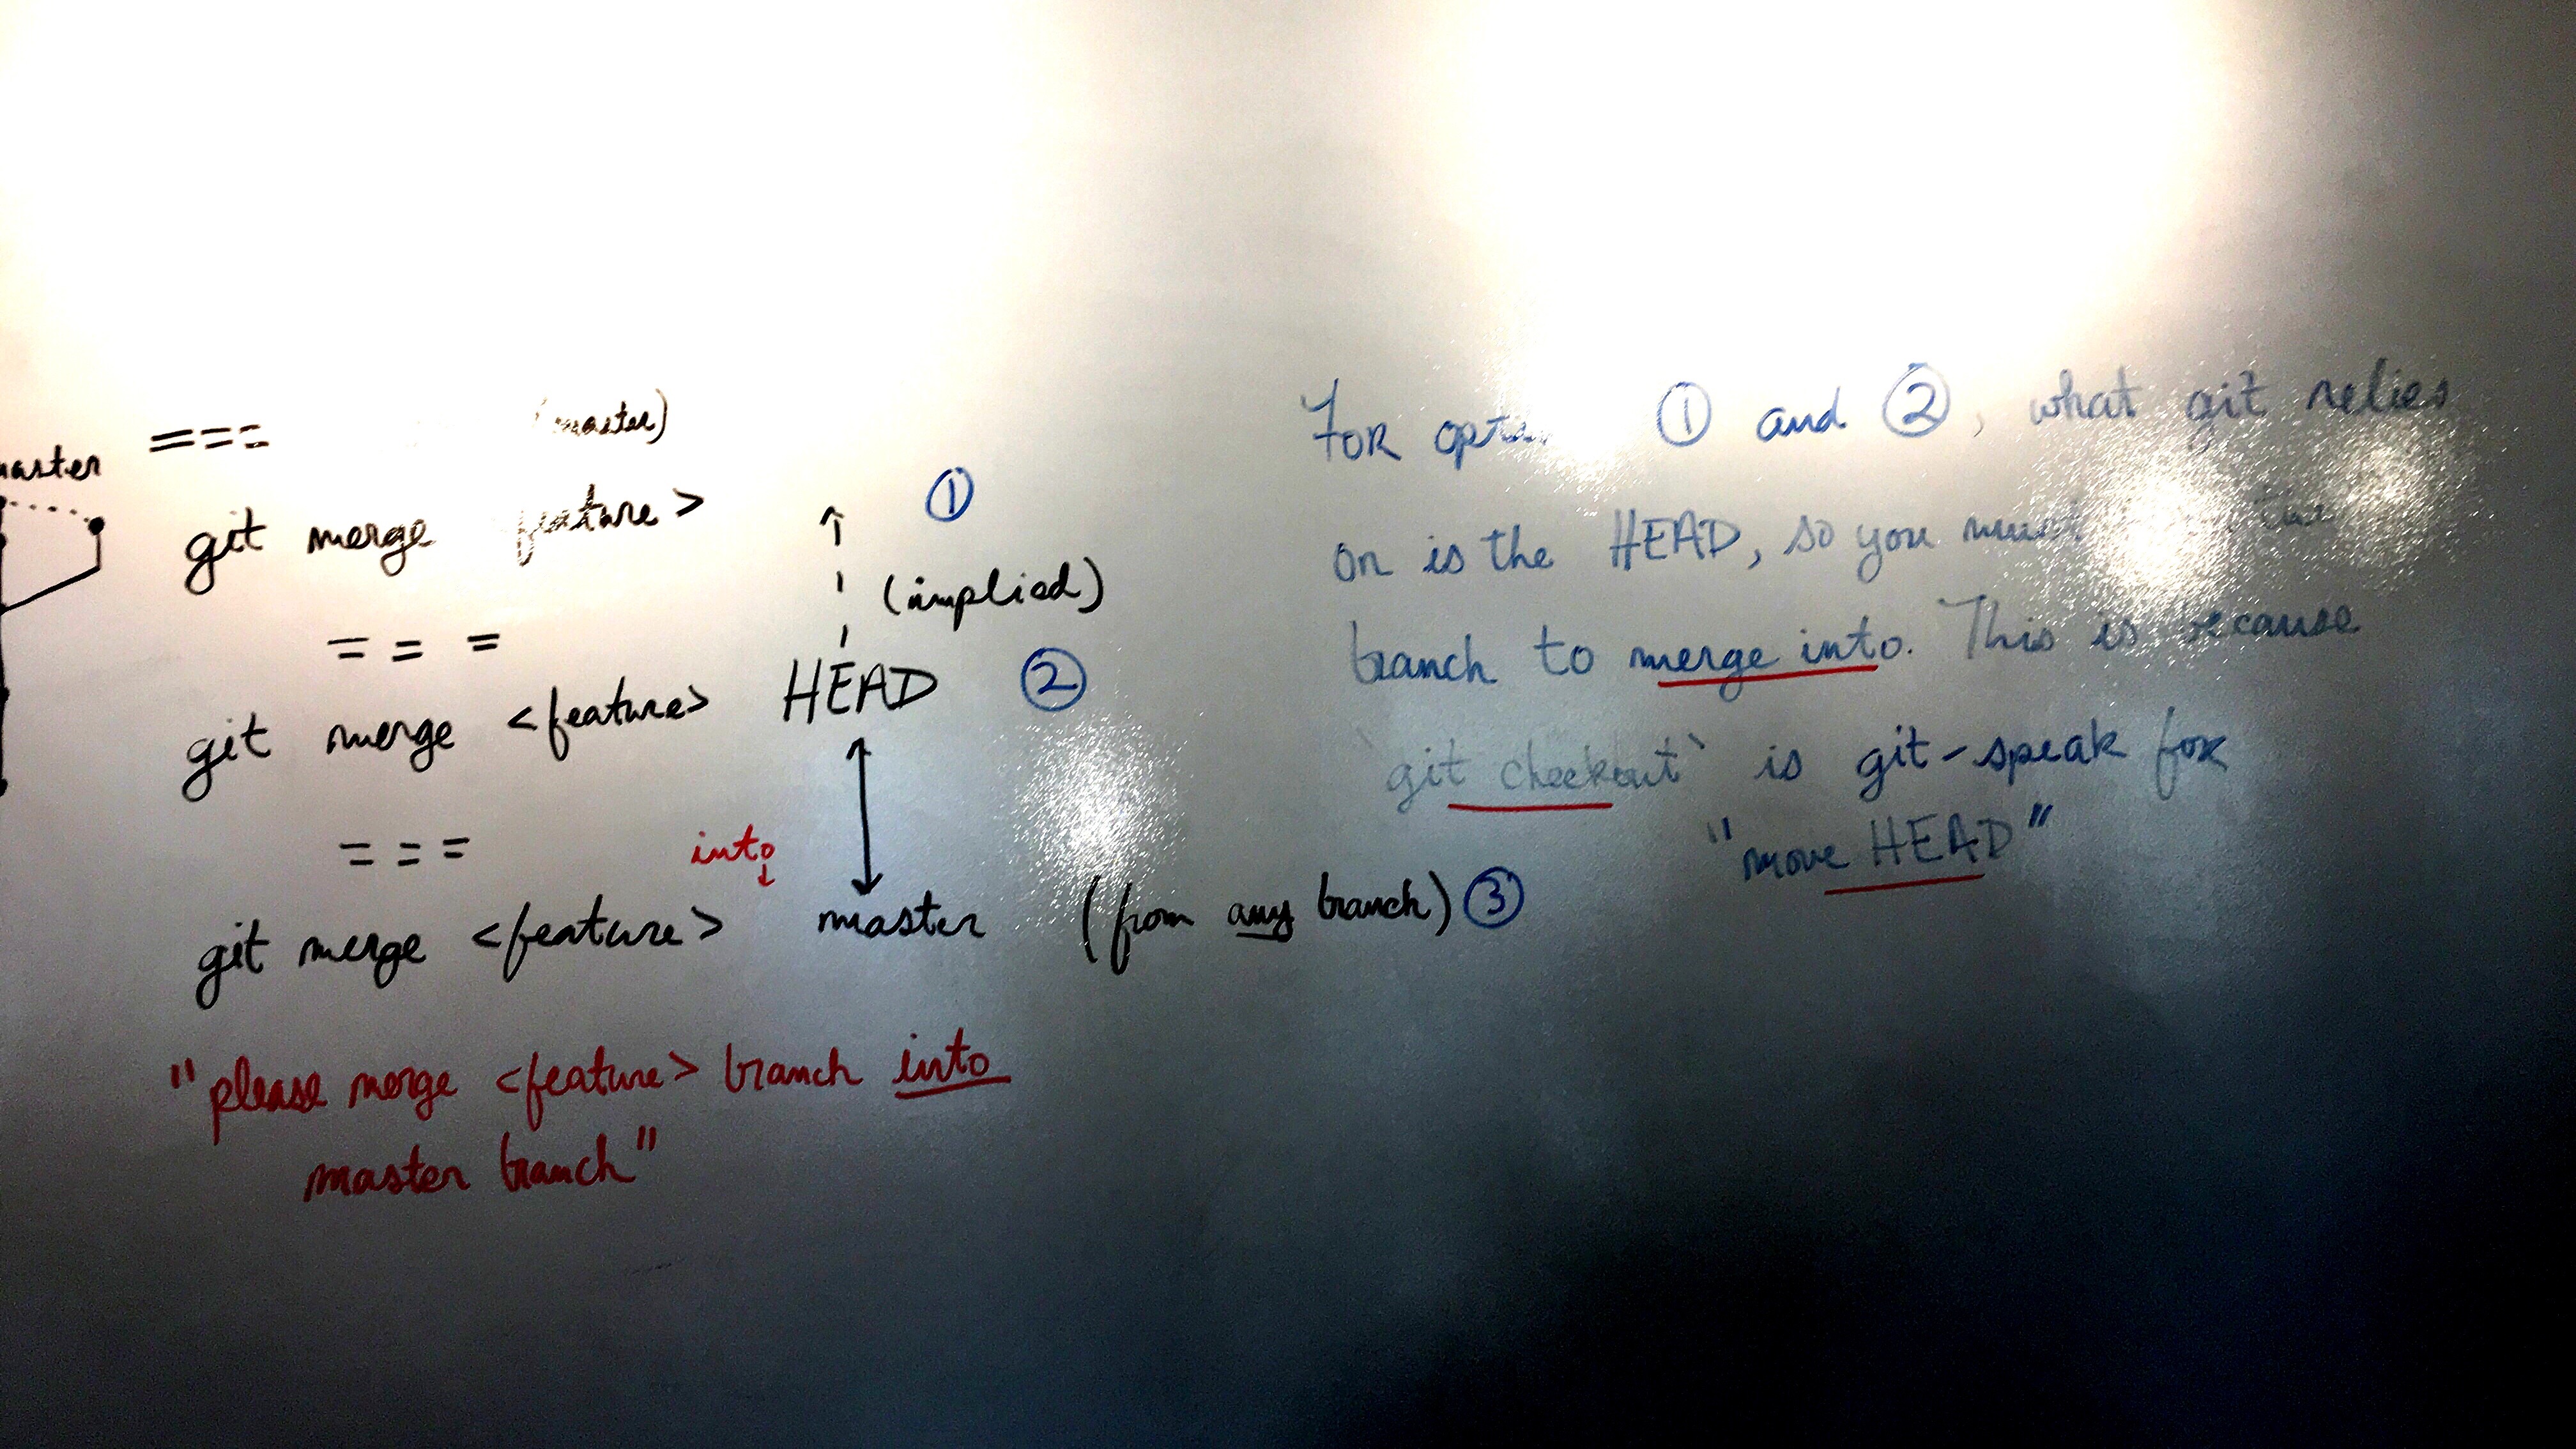 === (master)
master
git merge feature> ①
(implied)
===
git merge <feature> HEAD ②
===
into
git merge <feature> master (from any branch) ③
"please merge <feature> branch into
master branch"
For ① and ②, what git relies
on is the HEAD, so you must
branch to merge into. This is because
`git checkout` is git-speak for
"move HEAD"